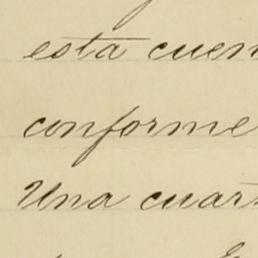 esta cuen
conforme
Una cuart